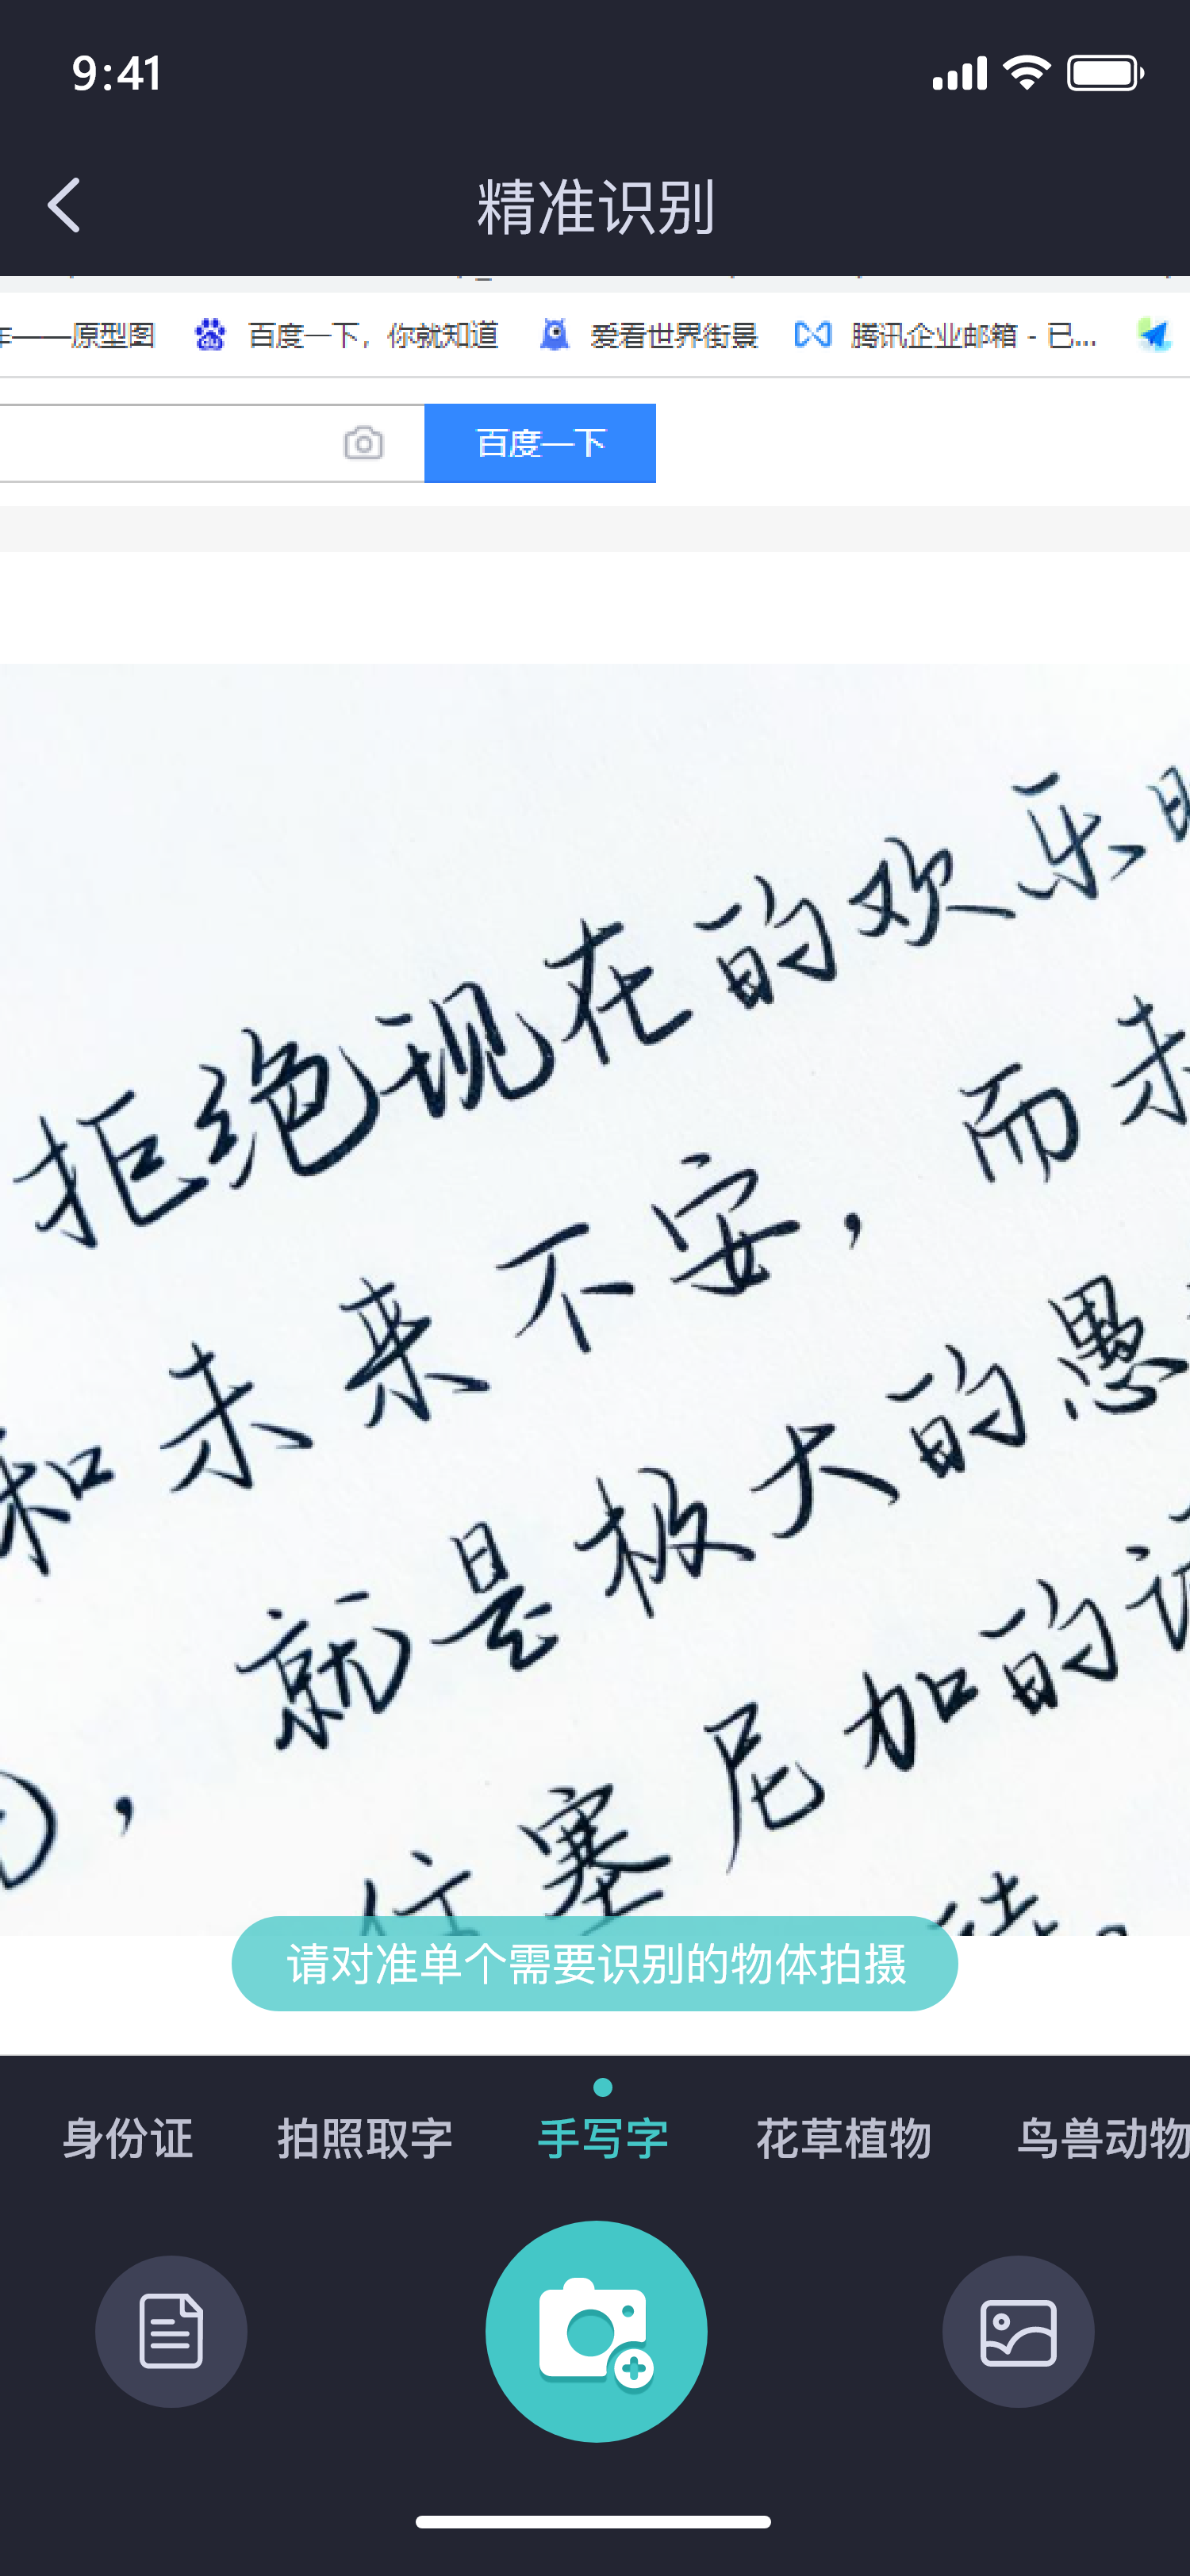 9:41
精准识别
——原型图 百度一下，你就知道 爱看世界街景 腾讯企业邮箱 - 已...
百度一下
拒绝现在的欢乐
和未来不安，而未
，就是极大的愚
位塞尼加的
请对准单个需要识别的物体拍摄
身份证 拍照取字 手写字 花草植物 鸟兽动物